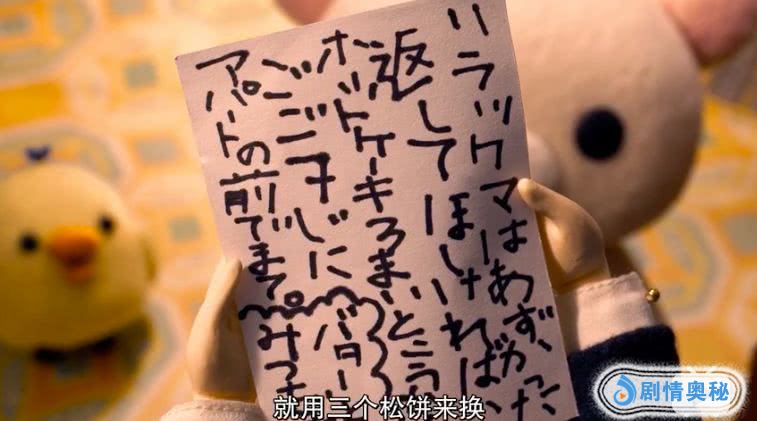 リラックマはあずかった
返してほしければ、
ホットケーキ3まいとこう
ごご7じに
アパートの前でまて。
バター
みつ
就用三个松饼来换
剧情奥秘